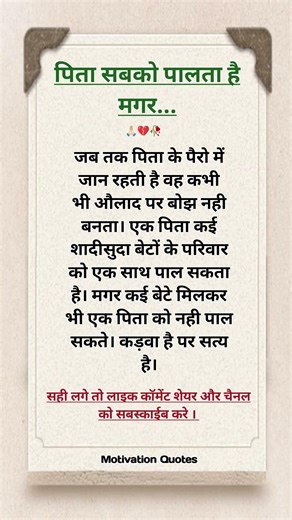 पिता सबको पालता है
मगर...
🙏🏻💔🥀
जब तक पिता के पैरो में
जान रहती है वह कभी
भी औलाद पर बोझ नही
बनता। एक पिता कई
शादीसुदा बेटों के परिवार
को एक साथ पाल सकता
है। मगर कई बेटे मिलकर
भी एक पिता को नही पाल
सकते। कड़वा है पर सत्य
है।
सही लगे तो लाइक कॉमेंट शेयर और चैनल
को सबस्काईब करे ।
Motivation Quotes